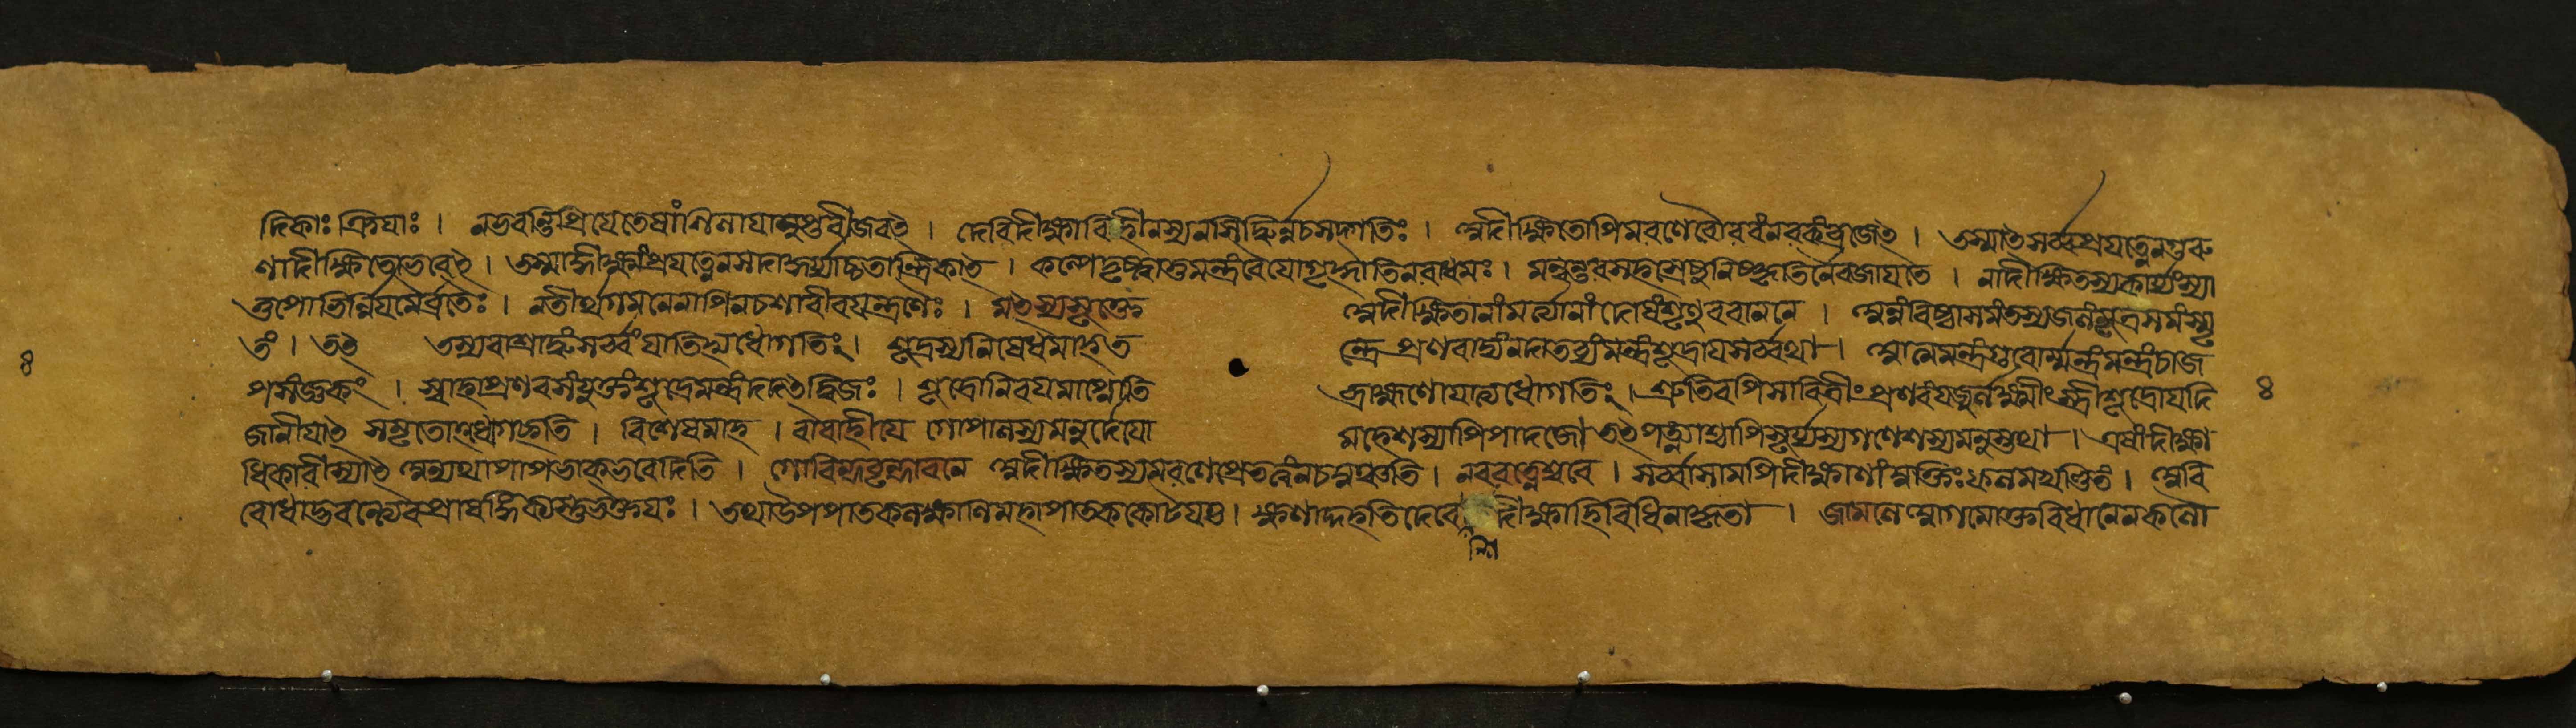 দিকাঃ ক্রিযাঃ । নভবন্তিপ্রিযেতেষাংশিলাযামুপ্তবীজবৎ । দেবিদীক্ষাবিহীনস্যনসিদ্ধির্ন্নচসদ্গতিঃ । অদীক্ষিতোপিমরণেরৌরবংনরকংব্রজেৎ । তস্মাৎসর্ব্বপ্রযত্নেনগুরু
ণাদীক্ষিতোভবেৎ । তস্মাদ্দীক্ষাংপ্রযত্নেনসদা তান্ত্রিকাৎ । কল্পেদৃষ্ট্বাতুমন্ত্রংবৈযোগৃহ্নাতিনরাধমঃ । মন্বন্তরসহস্রেষুনিষ্কৃতির্নৈবজাযতে । নাদীক্ষিতস্যকার্য্যংস্যা
ত্তপোভির্ন্নিযমৈর্ব্রতৈঃ । নতীর্থগমনেনাপিনচশারীরযন্ত্রণৈঃ । মৎস্যসূক্তে অদীক্ষিতানাংমর্ত্ত্যানাং দোষংশৃণুবরাননে । অন্নংবিষ্ঠাসমংতস্যজলংমূত্রসমংস্মৃ
তং । তৎ তস্যবাশ্রাদ্ধংসর্ব্বংযাতিহ্যধোগতিং । শূদ্রস্যনিষেধমাহত ন্ত্রে প্রণবাদ্যংনদাতব্যংমন্ত্রংশূদ্রাযসর্ব্বথা । আত্মমন্ত্রংগুরোর্ম্মন্ত্রংমন্ত্রংচাজ
পসংজ্ঞকং । স্বাহাপ্রণবসংযুক্তংশূদ্রেমন্ত্রংদদৎদ্বিজঃ । শূদ্রোনিরযমাপ্নোতি ব্রাহ্মণোযাত্যধোগতিং । শ্রুতিরপিসাবিত্রীংপ্রণবংযজুর্লক্ষ্মীংস্ত্রীশূদ্রোযদি
জানীযাৎ সমৃতোঽধোগচ্ছতি । বিশেষমাহ । বারাহীযে গোপালস্যমনুর্দেযো মহেশস্যাপিপাদজে । তৎপত্ন্যাশ্চাপিসূর্য্যস্যগণেশস্যমনুস্তথা । এষাংদীক্ষা
ধিকারীস্যাৎ অন্যথাপাপভাক্ভবেদিতি । গোবিন্দবৃন্দাবনে অদীক্ষিতস্যমরণেপ্রেতত্বংনচমুঞ্চতি । নবরত্নেশ্বরে । সর্ব্বাসামপিদীক্ষাণাংমুক্তিঃফলমখণ্ডিতং । অবি
রোধাদ্ভবন্ত্যেবপ্রাসঙ্গিক্যস্তুভুক্তযঃ । তথাউপপাতকলক্ষাণিমহাপাতককোটযশ্চ । ক্ষণাদ্দহতিদেবে দীক্ষাহিবিধিনাকৃতা । জামলে আগমোক্তবিধানেনকলৌ
শি
৪
৪